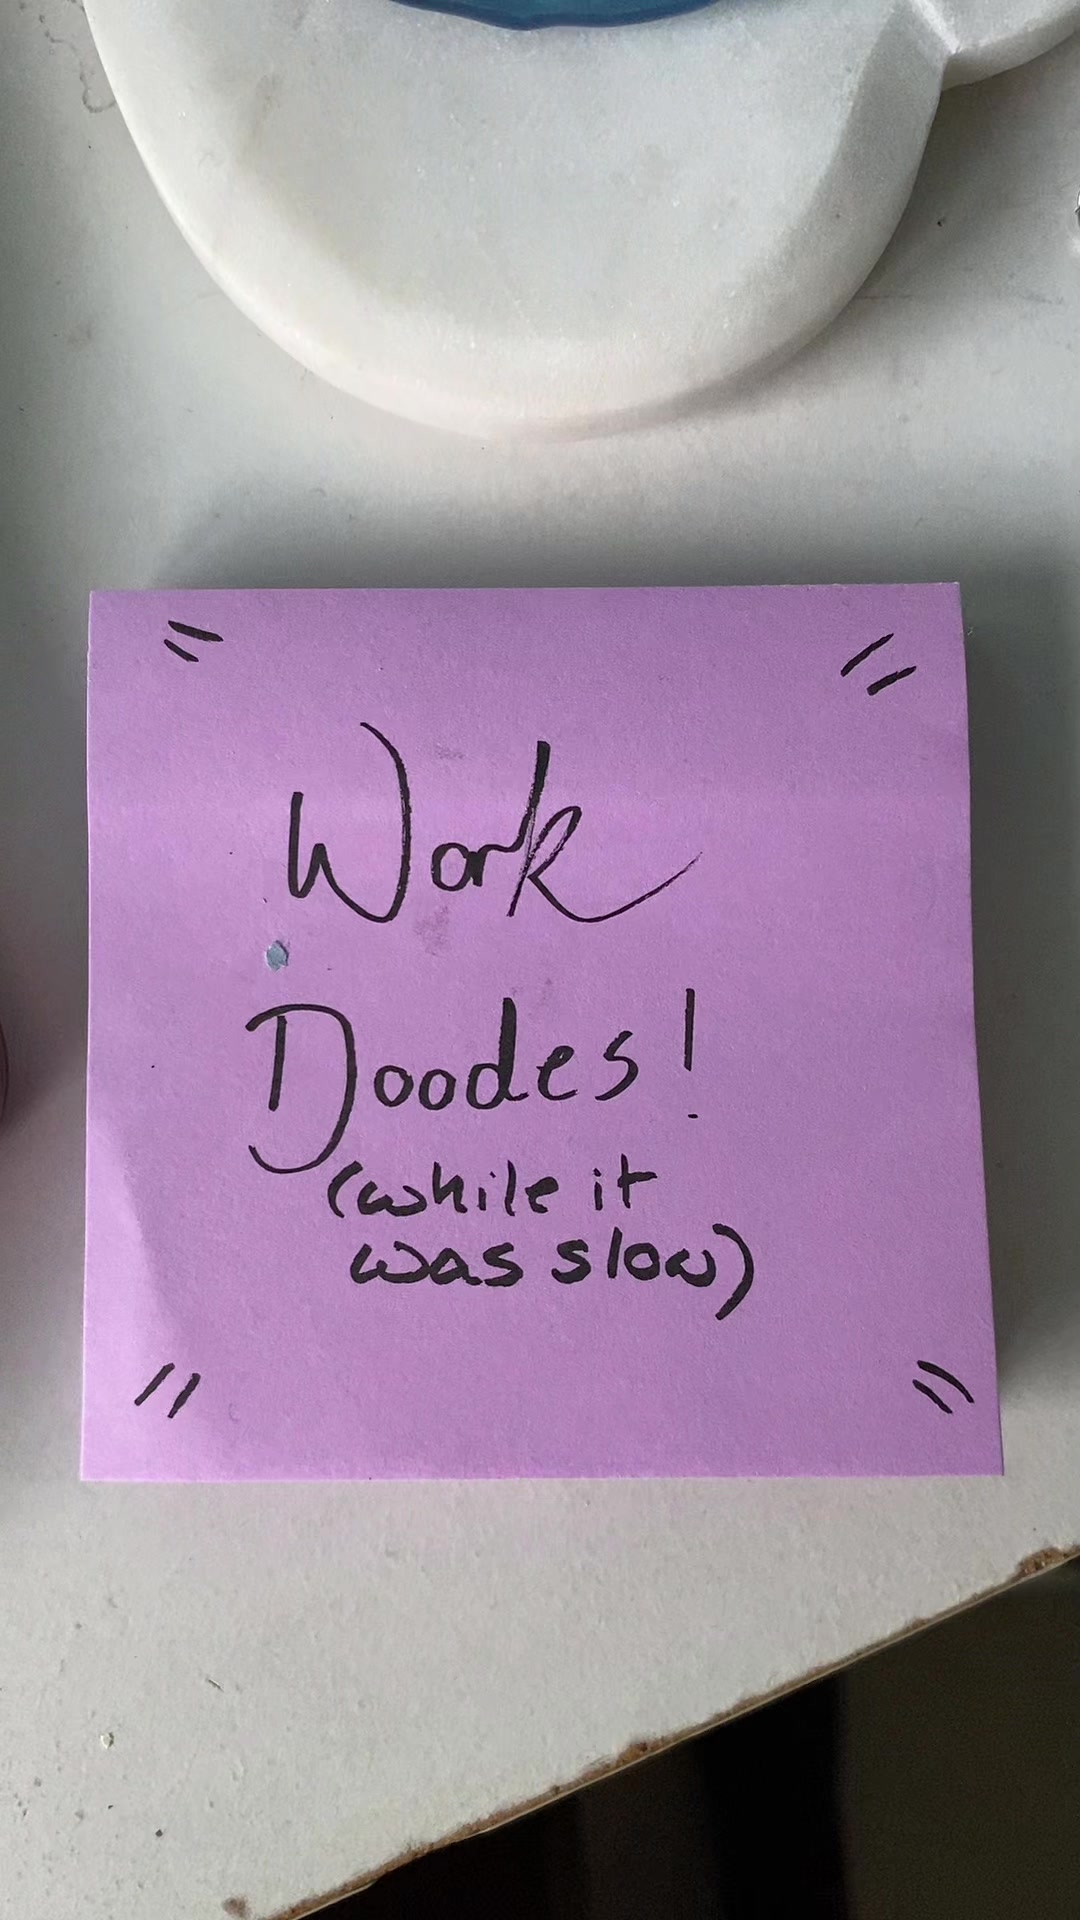 Work
Doodes!
(while it
was slow)